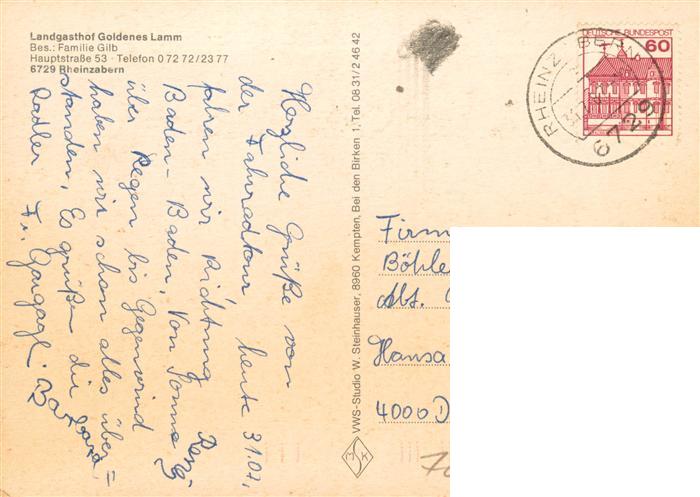 Landgasthof Goldenes Lamm
Bes.: Familie Gilb
Hauptstraße 53 · Telefon 0 72 72 / 23 77
6729 Rheinzabern
Herzliche Grüße von
der Fahrradtour heute 31.07.
fahren wir Richtung
Baden-Baden. Von Sonne
über Regen bis Gegenwind
haben wir schon alles über=
standen. Es grüßen die
Radler
VWS-Studio W. Steinhauser, 8960 Kempten, Bei den Birken 1, Tel. 08 31 / 2 46 42
MSK
DEUTSCHE BUNDESPOST
60
RHEINZ BERN
6729
Firm
Böhle
Abt.
Hansa
4000 D